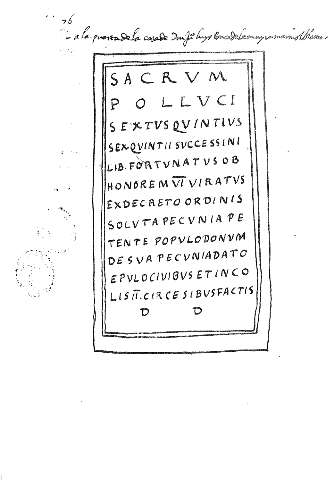 76
a la puerta de la casa de
SACRVM
POLLVCI
SEXTVS QVINTIVS
SEX QVINTII SVCCESSINI
LIB. FORTVNATVS OB
HONOREM V̅I̅ VIRATVS
EX DECRETO ORDINIS
SOLVTA PECVNIA PE
TENTE POPVLO DONVM
DE SVA PECVNIA DATO
EPVLO CIVIBVS ET INCO
LIS I̅I̅. CIRCESIBVS FACTIS
D D